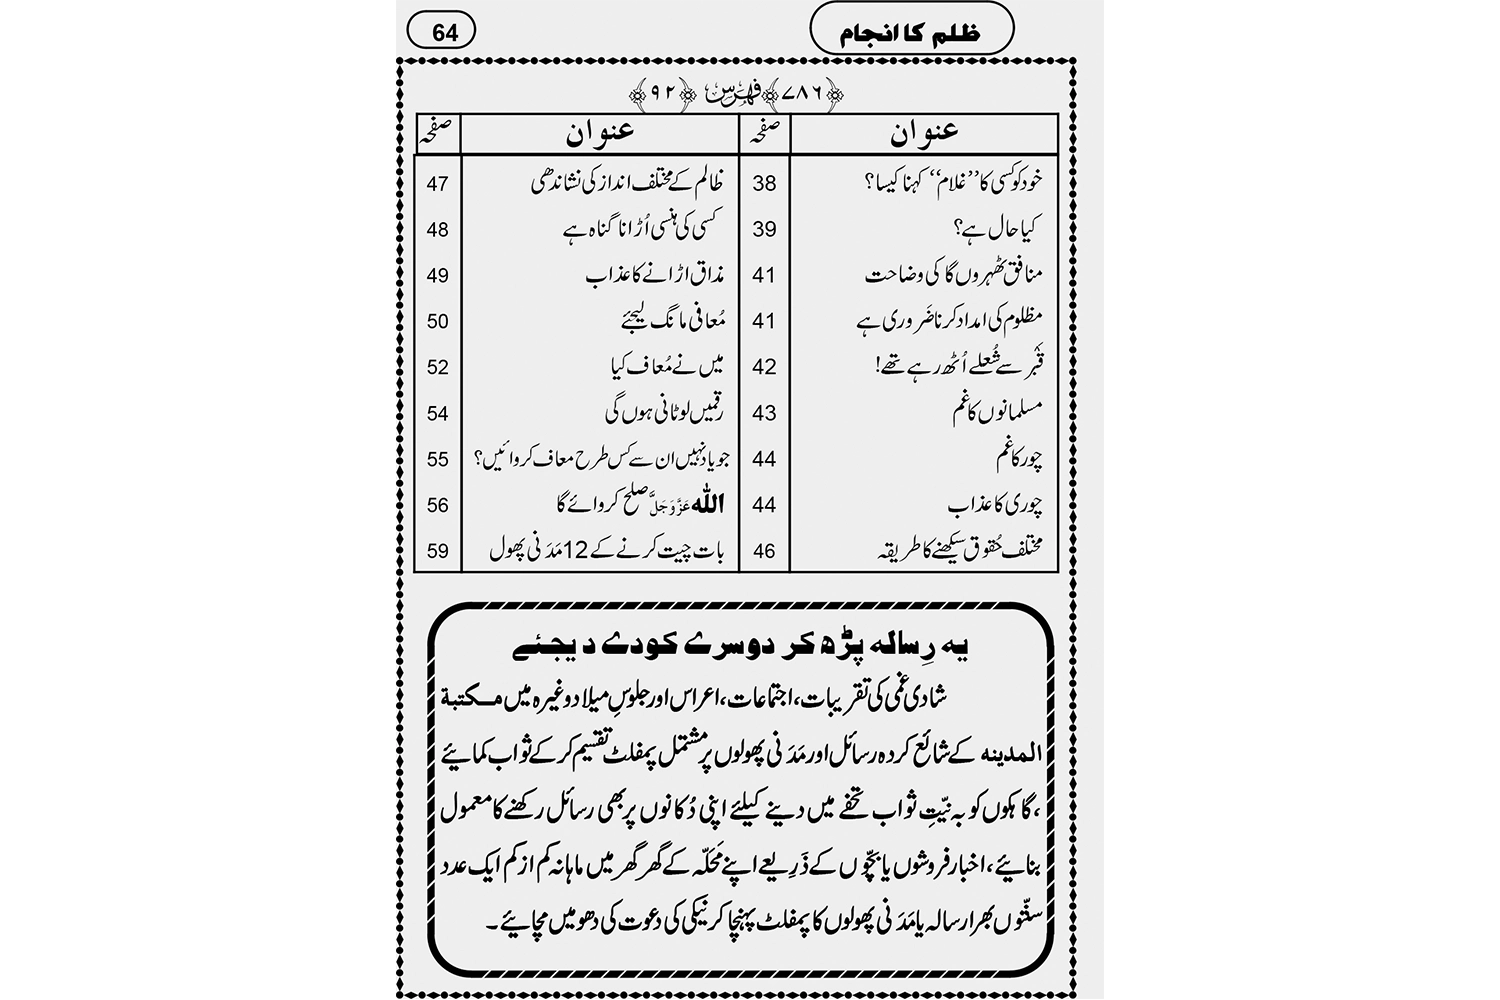 ظلم کا انجام 64
﴿۷۸۶﴾ فہرس ﴿۹۲﴾
عنوان صفحہ عنوان صفحہ
خود کو کسی کا ’’غلام‘‘ کہنا کیسا؟ 38 ظالم کے مختلف انداز کی نشاندھی 47
کیا حال ہے؟ 39 کسی کی ہنسی اُڑانا گناہ ہے 48
منافق ٹھہروں گا کی وضاحت 41 مذاق اڑانے کا عذاب 49
مظلوم کی امداد کرنا ضَروری ہے 41 مُعافی مانگ لیجئے 50
قبْر سے شُعلے اُٹھ رہے تھے! 42 میں نے مُعاف کیا 52
مسلمانوں کا غم 43 رقمیں لوٹانی ہوں گی 54
چور کا غم 44 جو یاد نہیں ان سے کس طرح معاف کروائیں؟ 55
چوری کا عذاب 44 اللّٰہ عَزَّوَجَلَّ صلح کروائے گا 56
مختلف حُقوق سیکھنے کا طریقہ 46 بات چیت کرنے کے 12 مَدَنی پھول 59
یہ رِسالہ پڑھ کر دوسرے کو دے دیجئے
شادی غمی کی تقریبات، اجتماعات، اعراس اور جلوسِ میلاد وغیرہ میں مکتبۃ
المدینہ کے شائع کردہ رسائل اور مَدَنی پھولوں پر مشتمل پمفلٹ تقسیم کر کے ثواب کمائیے
، گاہکوں کو بہ نیّتِ ثواب تحفے میں دینے کیلئے اپنی دُکانوں پر بھی رسائل رکھنے کا معمول
بنائیے، اخبار فروشوں یا بچّوں کے ذَرِیعے اپنے مَحَلّہ کے گھر گھر میں ماہانہ کم از کم ایک عدد
سنّتوں بھرا رسالہ یا مَدَنی پھولوں کا پمفلٹ پہنچا کر نیکی کی دعوت کی دھومیں مچائیے۔